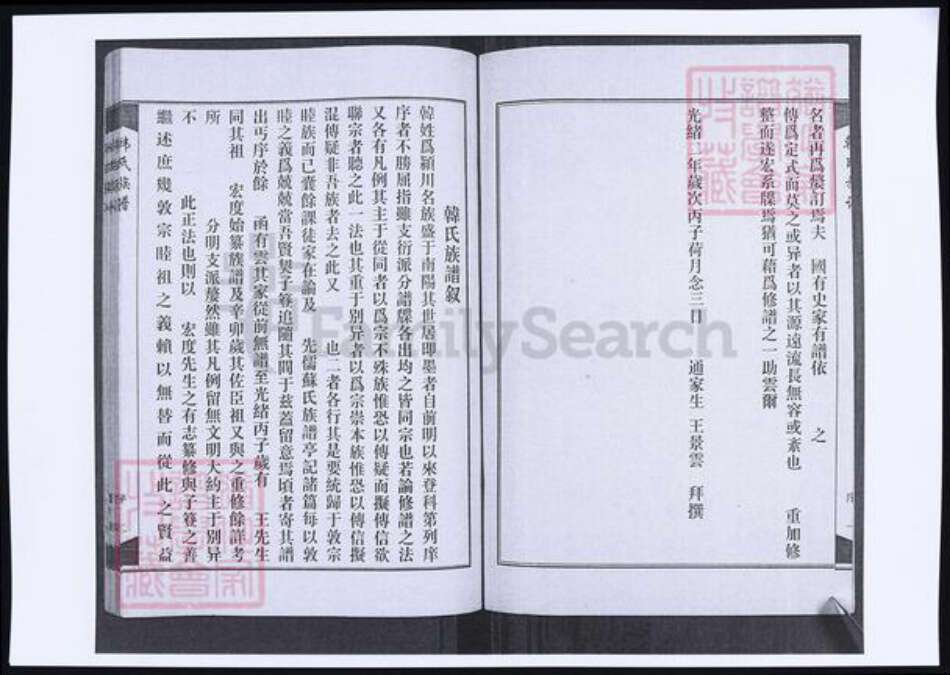 名者再爲釐訂焉夫 國有史家有譜依 之
傳爲定式而莫之或异者以其源遠流長無容或紊也 重加修
整而遂宏系牒焉猶可藉爲修譜之一助雲爾
光緒 年歲次丙子荷月念三日 通家生 王景雲 拜撰
韓氏族譜叙
韓姓爲潁川名族盛于南陽其世居即墨者自前明以來登科第列庠
序者不勝屈指雖支衍派分譜牒各出均之皆同宗也若論修譜之法
又各有凡例其主于從同者以爲宗不殊族惟恐以傳疑而擬傳信欲
聯宗者聽之此一法也其重于別异者以爲宗崇本族惟恐以傳信擬
混傳疑非吾族者去之此又 也二者各行其是要統歸于敦宗
睦族而已曩餘課徒家在論及 先儒蘇氏族譜亭記諸篇每以敦
睦之義爲兢兢當吾賢契子簪追隨其間于兹蓋留意焉頃者寄其譜
出丐序於餘 函有雲其家從前無譜至光緒丙子歲有 王先生
同其祖 宏度始纂族譜及辛卯歲其佐臣祖又與之重修餘詳考
所 分明支派釐然雖其凡例留無文明大約主于別异
不 此正法也則以 宏度先生之有志纂修與子簪之善
繼述庶幾敦宗睦祖之義賴以無替而從此之賢益
韓氏族譜
FamilySearch